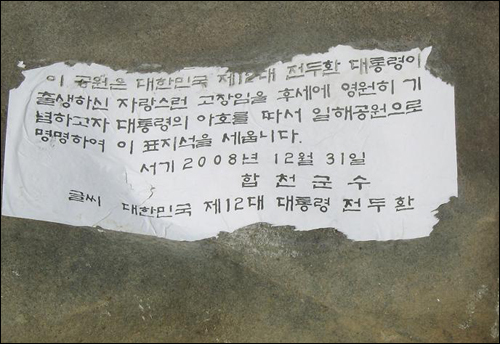 이 공원은 대한민국 제12대 전두환 대통령이
출생하신 자랑스런 고장임을 후세에 영원히 기
념하고자 대통령의 아호를 따서 일해공원으로
명명하여 이 표지석을 세웁니다.
서기 2008년 12월 31일
합천군수
글씨 대한민국 제12대 대통령 전두환